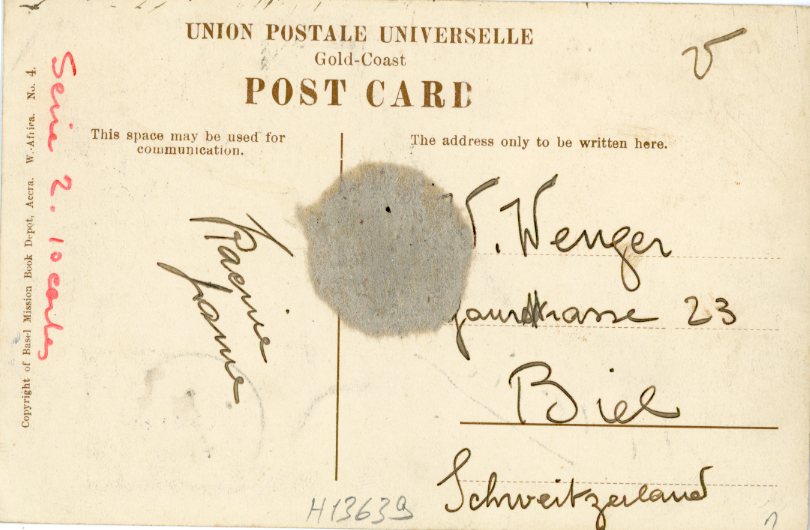 UNION POSTALE UNIVERSELLE
Gold-Coast
POST CARD
This space may be used for
communication.
The address only to be written here.
Copyright of Basel Mission Book Depot, Accra. W.-Africa. No. 4.
Serie 2. 10 cartes
. Wenger
strasse 23
Biel
Schweitzerland
H13639